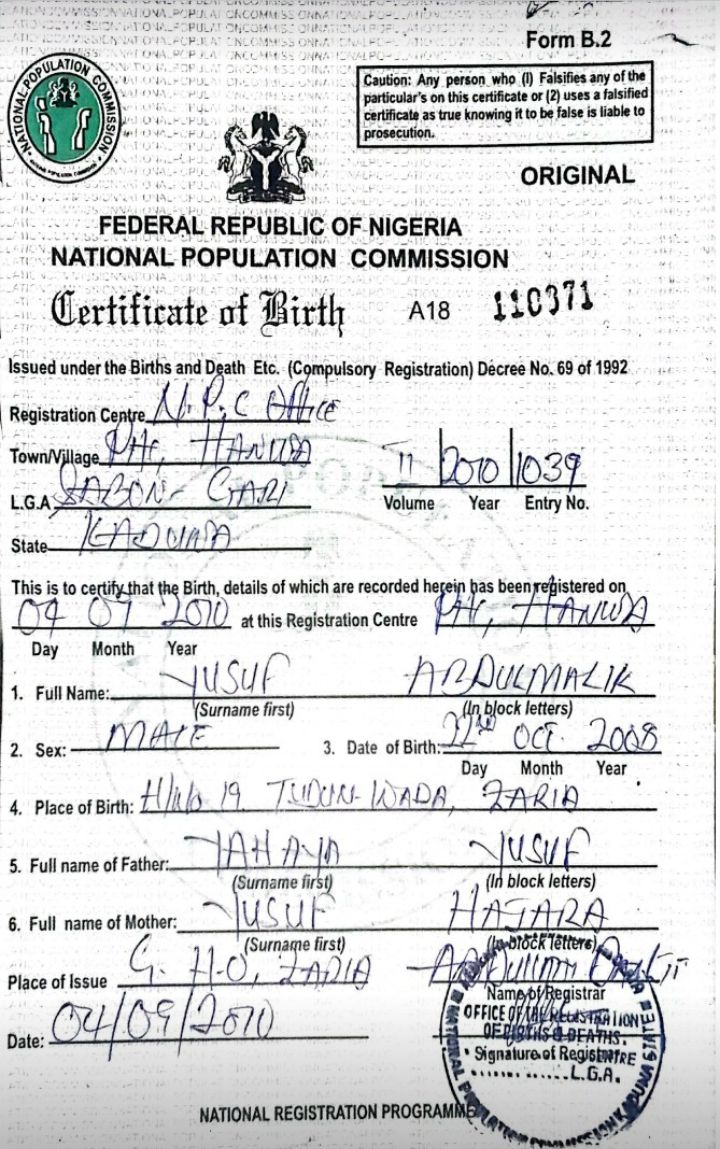 Form B.2
NATIONAL POPULATION COMMISSION
Caution: Any person who (I) Falsifies any of the
particular's on this certificate or (2) uses a falsified
certificate as true knowing it to be false is liable to
prosecution.
ORIGINAL
FEDERAL REPUBLIC OF NIGERIA
NATIONAL POPULATION COMMISSION
Certificate of Birth A18 110371
Issued under the Births and Death Etc. (Compulsory Registration) Decree No. 69 of 1992
Registration Centre N.P.C Office
Town/Village HANWA
II 2010 1039
L.G.A SABON-GARI
Volume Year Entry No.
State KADUNA
This is to certify that the Birth, details of which are recorded herein has been registered on
04 09 2010 at this Registration Centre HANWA
Day Month Year
1. Full Name: YUSUF ABDULMALIK
(Surname first) (In block letters)
2. Sex: MALE 3. Date of Birth: 22nd OCT. 2008
Day Month Year
4. Place of Birth: 19 TUDUN-WADA, ZARIA
5. Full name of Father: YAHAYA YUSUF
(Surname first) (In block letters)
6. Full name of Mother: YUSUF HAJARA
(Surname first) (In block letters)
Place of Issue G.H.O, ZARIA ABDULLAHI
Name of Registrar
OFFICE OF THE REGISTRATION
OF BIRTHS & DEATHS.
Date: 04/09/2010
Signature of Registrar
CENTRE
L.G.A.
NATIONAL POPULATION COMMISSION KADUNA STATE
NATIONAL REGISTRATION PROGRAMME